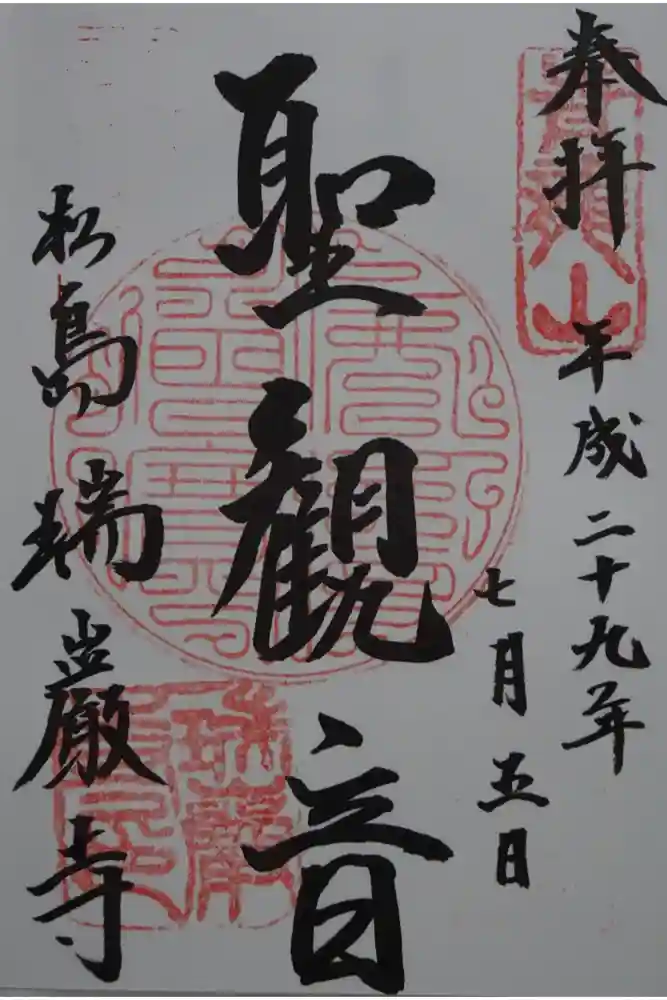 奉拝
平成二十九年
七月五日
聖觀音
松島瑞巌寺